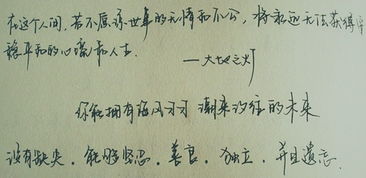 在这个人间,若不原谅世事的无情和不公,将永远无法获得平
稳平和的心境和人生.
——大地之灯
你能拥有海风习习 潮来汐往的未来
没有缺失.能够坚忍.善良.独立.并且遗忘.